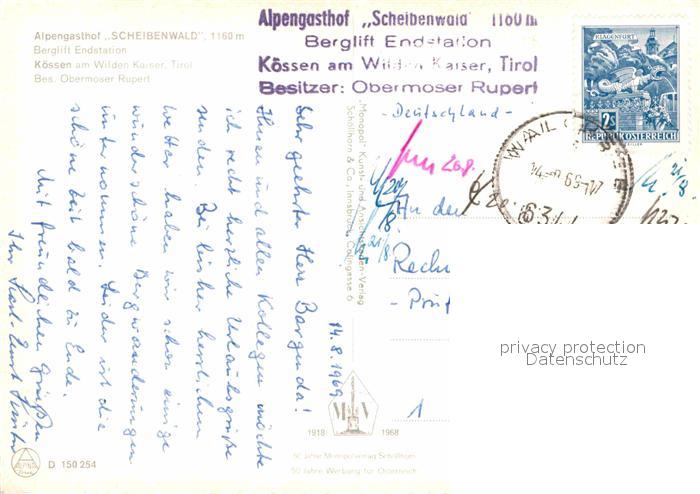 Alpengasthof „SCHEIBENWALD", 1160 m
Berglift Endstation
Kössen am Wilden Kaiser, Tirol
Bes. Obermoser Rupert
Alpengasthof „Scheibenwald" 1160 m
Berglift Endstation
Kössen am Wilden Kaiser, Tirol
Besitzer: Obermoser Rupert
KLAGENFURT
2S
REPUBLIK ÖSTERREICH
- Deutschland -
14.8.1969
Sehr geehrter Herr Bargenda!
Ihnen und allen Kollegen möchte
ich recht herzliche Urlaubsgrüße
senden. Bei bisher herrlichem
Wetter haben wir schon einige
wunderschöne Bergwanderungen
unternommen. Leider ist die
schöne Zeit bald zu Ende.
Mit freundlichen Grüßen
Ihr Karl-Ernst
"Monopol" Kunst- und Ansichtskarten-Verlag
Schöllhorn & Co., Innsbruck, Colingasse 6
An den
Rech
- Prüf
1
M V
1918
1968
50 Jahre Monopolverlag Schöllhorn
50 Jahre Werbung für Österreich
ALPINA
D 150 254
privacy protection
Datenschutz